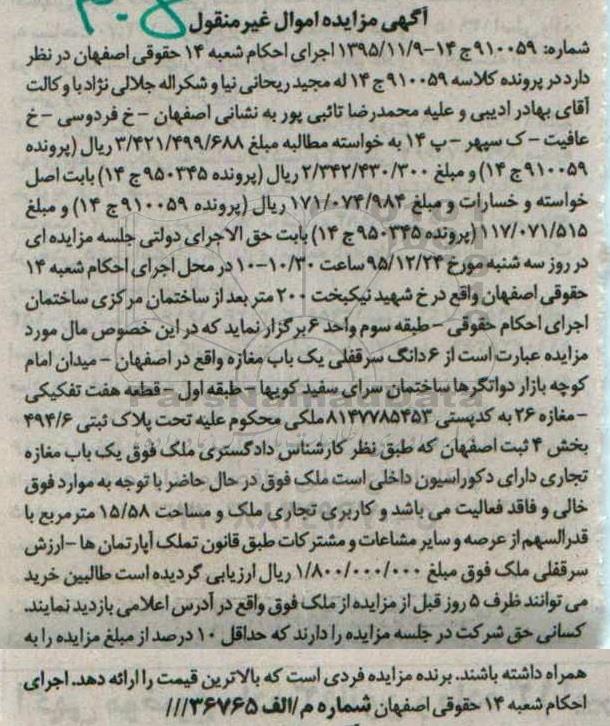 آگهی مزایده اموال غیر منقول
شماره: ۹۱۰۰۵۹ج۱۴-۱۳۹۵/۱۱/۹ اجرای احکام شعبه ۱۴ حقوقی اصفهان در نظر
دارد در پرونده کلاسه ۹۱۰۰۵۹ج۱۴ له مجید ریحانی نیا و شکراله جلالی نژاد با وکالت
آقای بهادر ادیبی و علیه محمدرضا تائبی پور به نشانی اصفهان - خ فردوسی - خ
عافیت - ک سپهر - پ ۱۴ به خواسته مطالبه مبلغ ۳/۴۲۱/۴۹۹/۶۸۸ ریال (پرونده
۹۱۰۰۵۹ج۱۴) و مبلغ ۲/۳۴۲/۴۳۰/۳۰۰ ریال (پرونده ۹۵۰۳۴۵ج۱۴) بابت اصل
خواسته و خسارات و مبلغ ۱۷۱/۰۷۴/۹۸۴ ریال (پرونده ۹۱۰۰۵۹ج۱۴) و مبلغ
۱۱۷/۰۷۱/۵۱۵ (پرونده ۹۵۰۳۴۵ج۱۴) بابت حق الاجرای دولتی جلسه مزایده ای
در روز سه شنبه مورخ ۹۵/۱۲/۲۴ ساعت ۱۰/۳۰-۱۰ در محل اجرای احکام شعبه ۱۴
حقوقی اصفهان واقع در خ شهید نیکبخت ۲۰۰ متر بعد از ساختمان مرکزی ساختمان
اجرای احکام حقوقی - طبقه سوم واحد ۶ برگزار نماید که در این خصوص مال مورد
مزایده عبارت است از ۶ دانگ سرقفلی یک باب مغازه واقع در اصفهان - میدان امام
کوچه بازار دواتگرها ساختمان سرای سفید کوبها - طبقه اول - قطعه هفت تفکیکی
- مغازه ۲۶ به کدپستی ۸۱۴۷۷۸۵۴۵۳ ملکی محکوم علیه تحت پلاک ثبتی ۴۹۴/۶
بخش ۴ ثبت اصفهان که طبق نظر کارشناس دادگستری ملک فوق یک باب مغازه
تجاری دارای دکوراسیون داخلی است ملک فوق در حال حاضر با توجه به موارد فوق
خالی و فاقد فعالیت می باشد و کاربری تجاری ملک و مساحت ۱۵/۵۸ مترمربع با
قدرالسهم از عرصه و سایر مشاعات و مشترکات طبق قانون تملک آپارتمان ها - ارزش
سرقفلی ملک فوق مبلغ ۱/۸۰۰/۰۰۰/۰۰۰ ریال ارزیابی گردیده است طالبین خرید
می توانند ظرف ۵ روز قبل از مزایده از ملک فوق واقع در آدرس اعلامی بازدید نمایند.
کسانی حق شرکت در جلسه مزایده را دارند که حداقل ۱۰ درصد از مبلغ مزایده را به
همراه داشته باشند. برنده مزایده فردی است که بالاترین قیمت را ارائه دهد. اجرای
احکام شعبه ۱۴ حقوقی اصفهان شماره م/الف ۳۶۷۶۵///